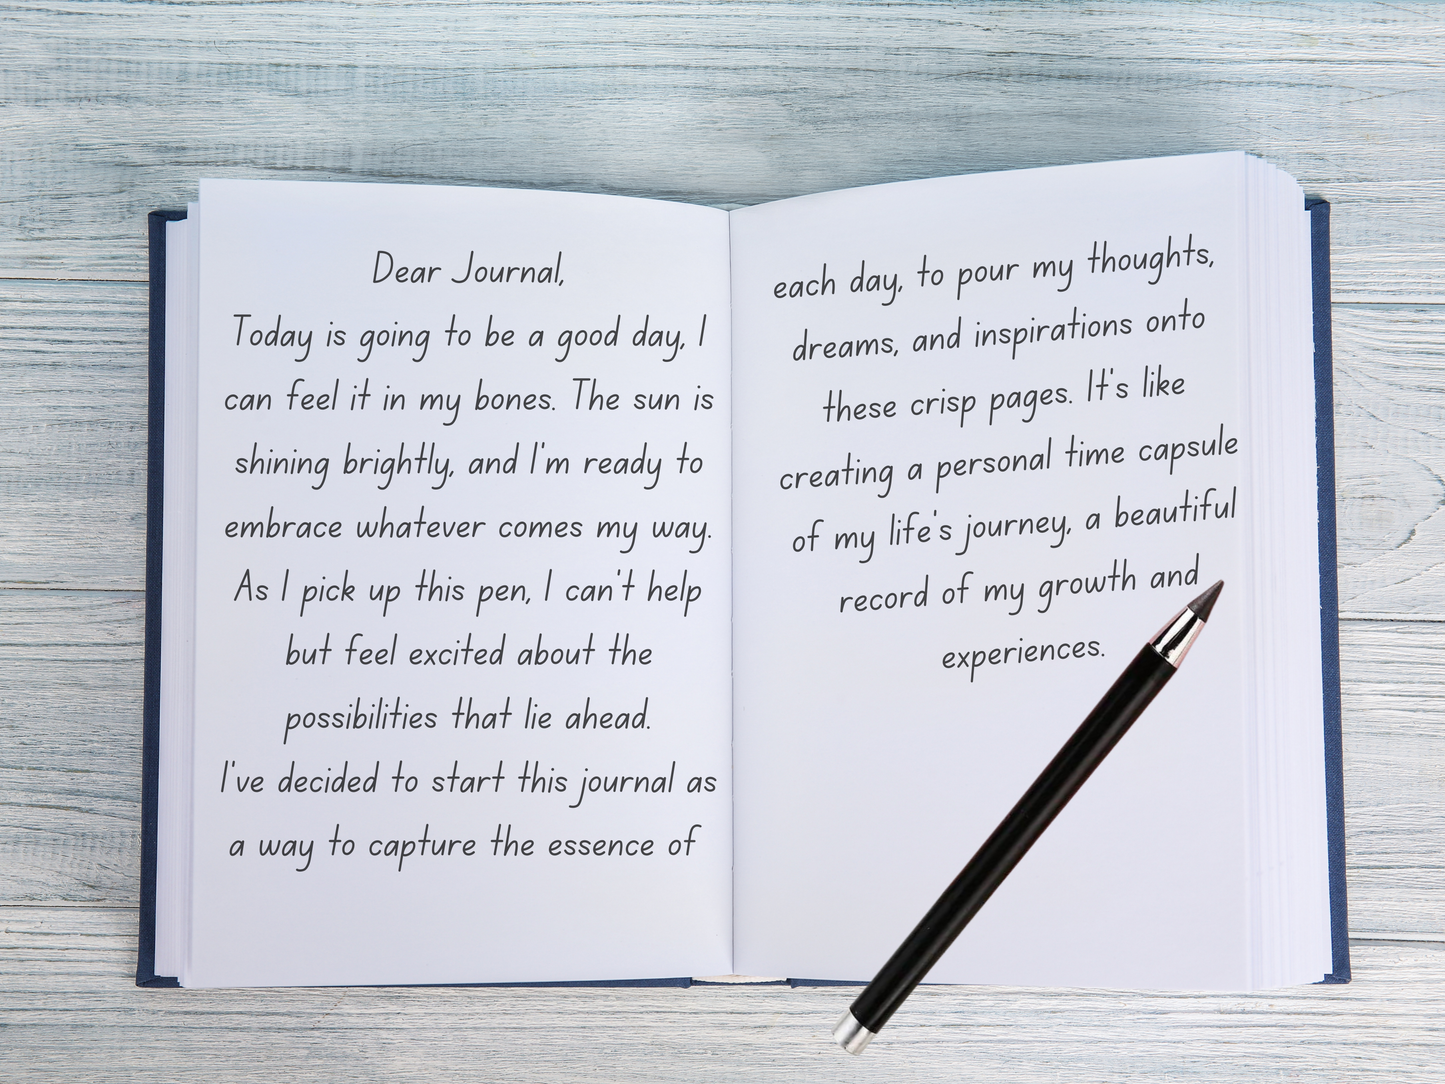 Dear Journal,
Today is going to be a good day, I
can feel it in my bones. The sun is
shining brightly, and I'm ready to
embrace whatever comes my way.
As I pick up this pen, I can't help
but feel excited about the
possibilities that lie ahead.
I've decided to start this journal as
a way to capture the essence of
each day, to pour my thoughts,
dreams, and inspirations onto
these crisp pages. It's like
creating a personal time capsule
of my life's journey, a beautiful
record of my growth and
experiences.